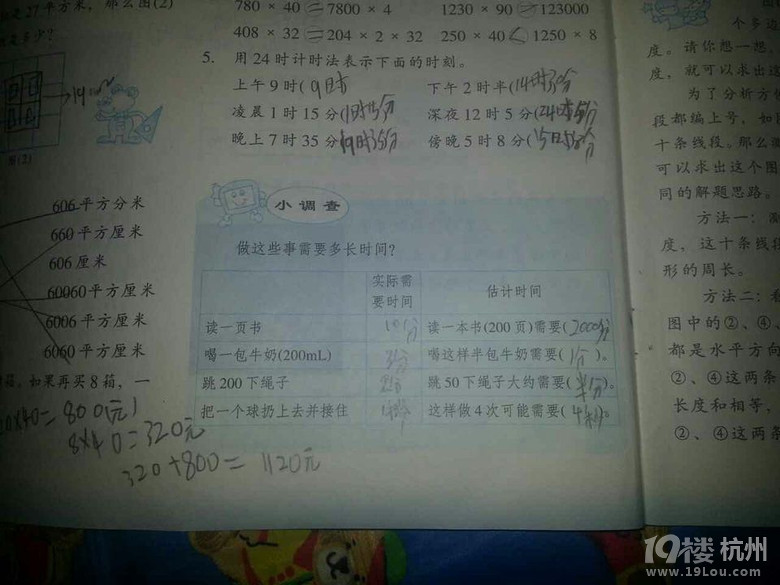 是27平方米，那么图(2)
是多少？
图(2)
606平方分米
660平方厘米
606厘米
60060平方厘米
6006平方厘米
6060平方厘米
如果再买8箱，一
×40=800(元)
8×40=320元
320+800=1120元
780 × 40 = 7800 × 4
1230 × 90 > 123000
408 × 32 = 204 × 2 × 32
250 × 40 < 1250 × 8
5. 用24时计时法表示下面的时刻。
上午9时(9时)
下午2时半(14时30分
凌晨1时15分(1时15分
深夜12时5分(24时5分
晚上7时35分(19时35分
傍晚5时8分(15时8分
小调查
做这些事需要多长时间？
实际需要时间
估计时间
读一页书 10分 读一本书(200页)需要(2000分
喝一包牛奶(200mL) 喝这样半包牛奶需要(1分)。
跳200下绳子 跳50下绳子大约需要(半分)。
把一个球扔上去并接住 这样做4次可能需要(4秒)。
个多边
度。请你想一想，
度，就可以求出这
为了分析方便
段都编上号，如
十条线段。那么
可以求出这个图
同的解题思路。
方法一：
度，这十条线
形的周长。
方法二：看
图中的②、④
都是水平方向
②、④这两条
长度和相等，
②、④这两条
19楼杭州
www.19lou.com